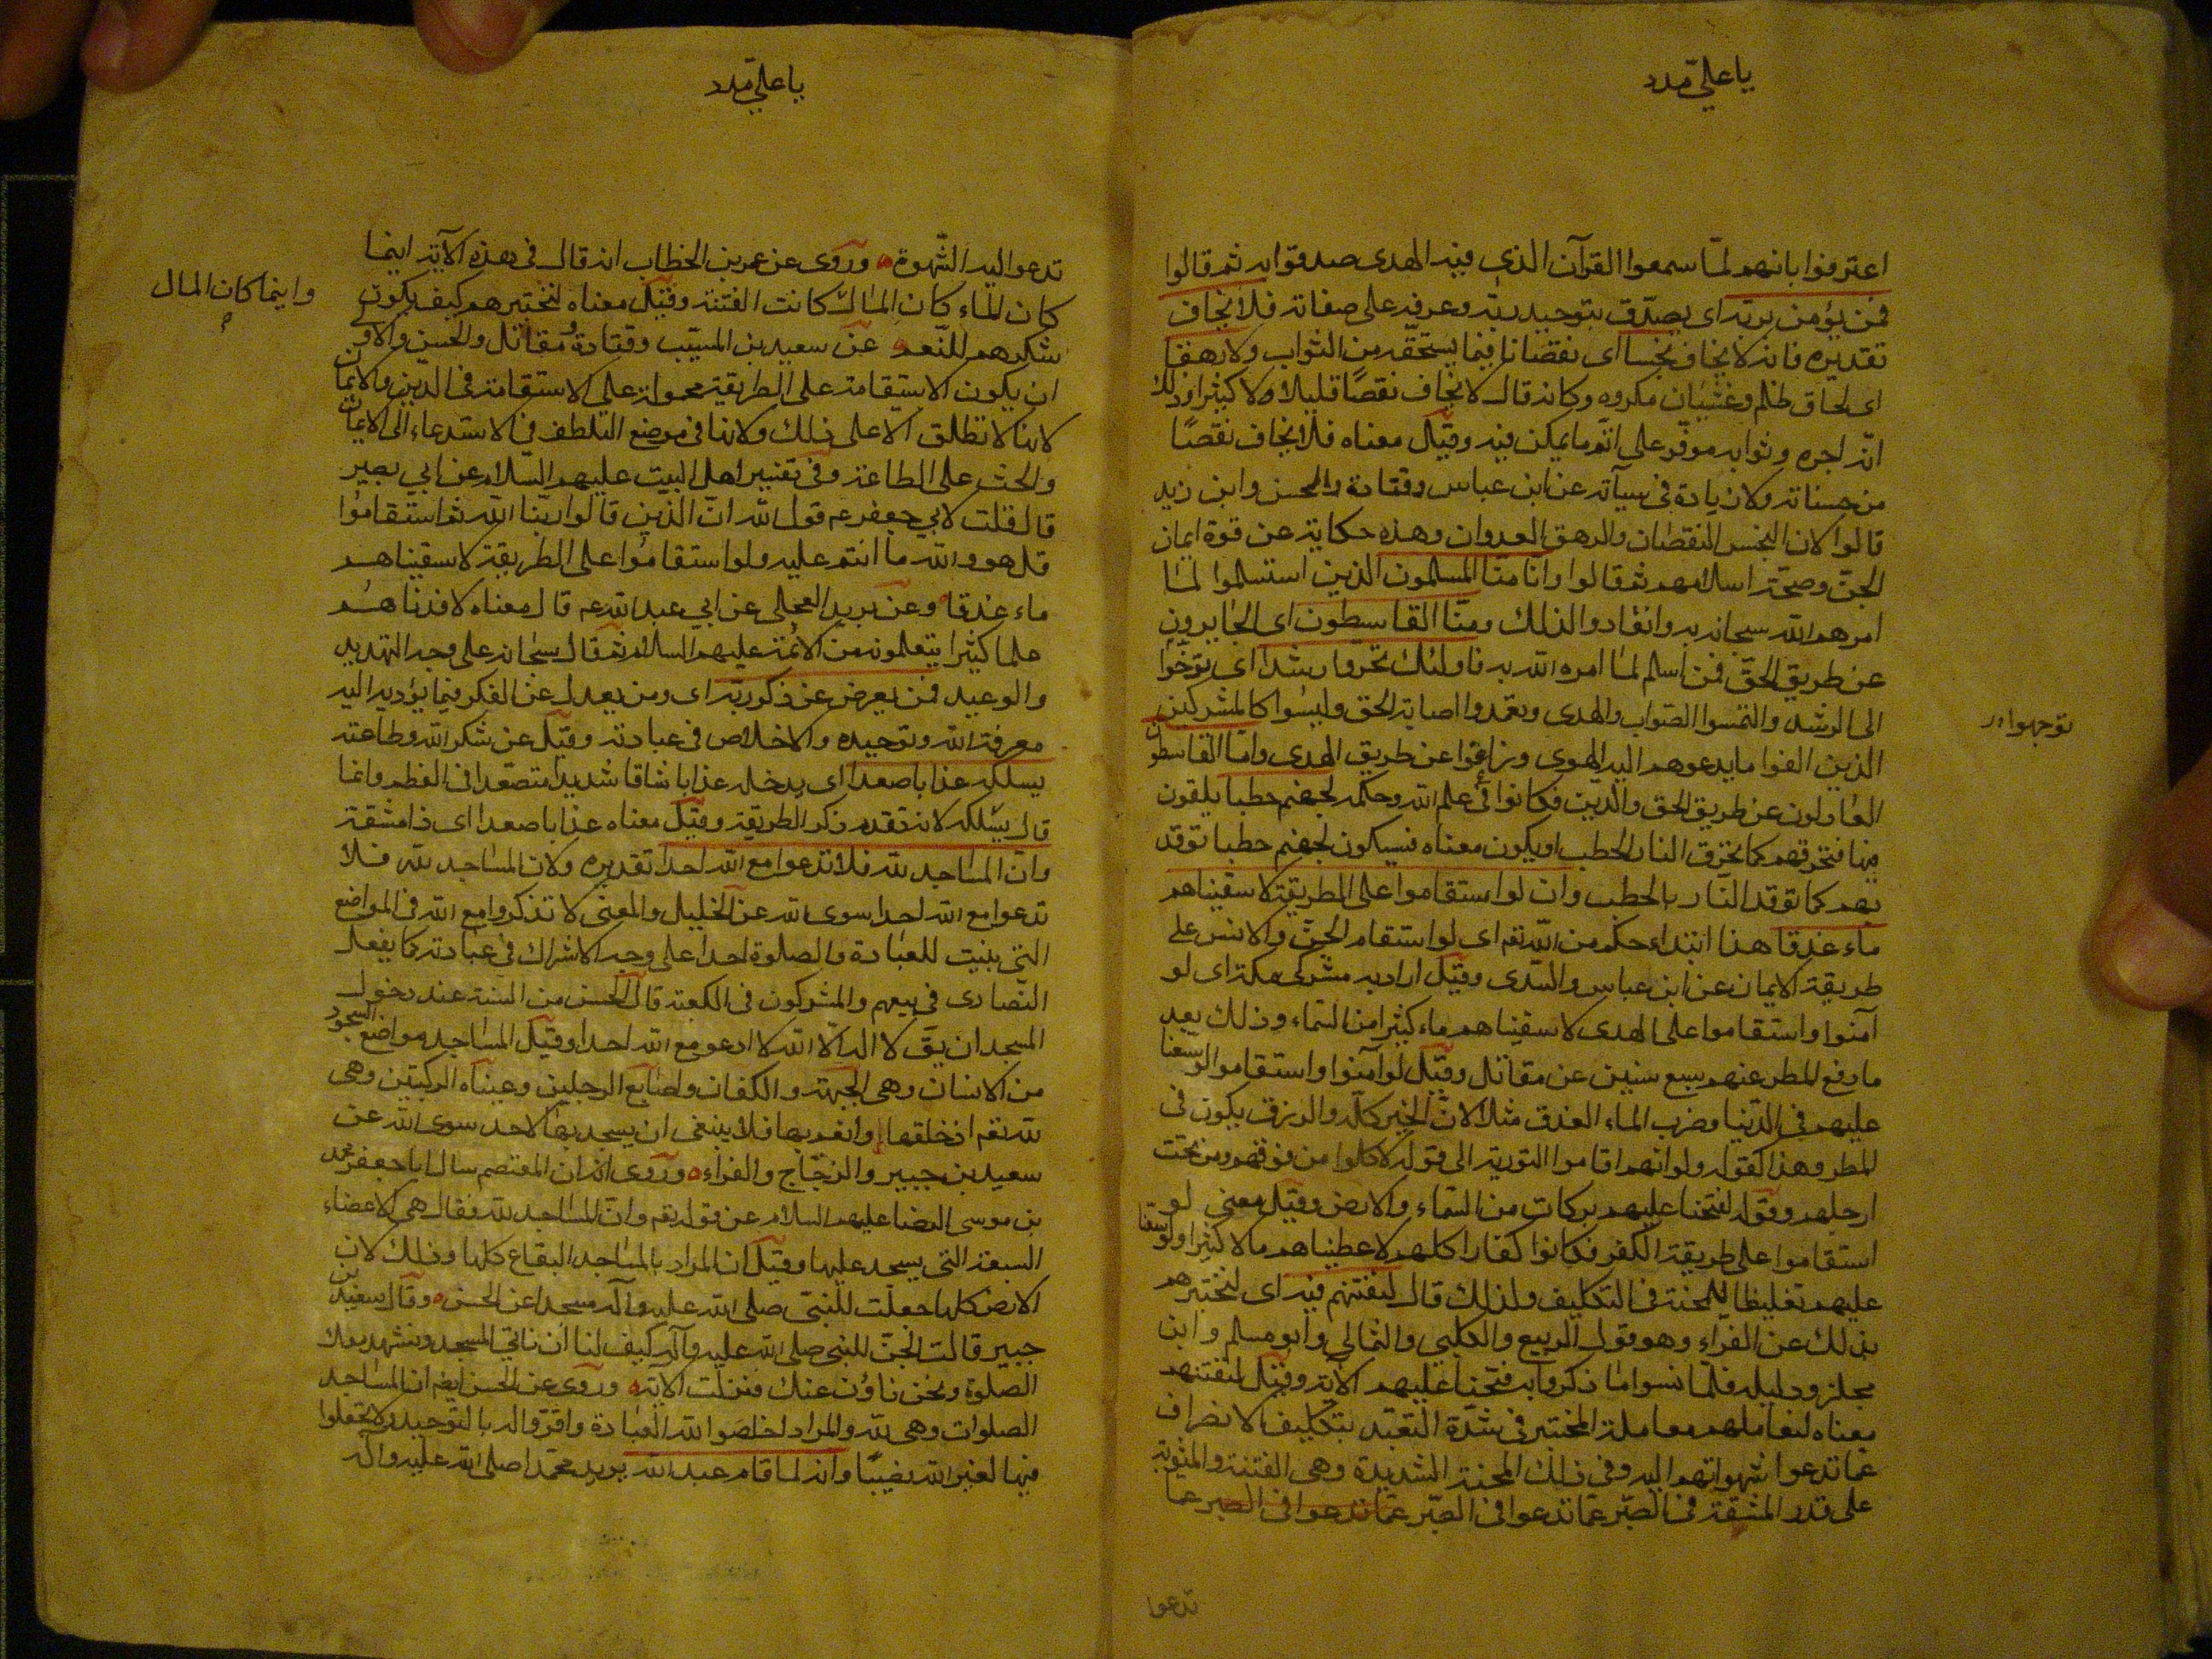 يا علي مدد
اعترفوا بانهم لما سمعوا القرآن الذى فيه الهدى صدقوا به ثم قالوا
فمن يؤمن بربه اى يصدق بتوحيد ربه وعرفه على صفاته فلا يخاف
تقديره فانه لا يخاف بخسا اى نقصانا فيما يستحقه من الثواب ولا رهقا
اى لحاق ظلم وغشيان مكروه وكانه قال لا يخاف نقصا قليلا ولا كثيرا وذلك
ان اجره وثوابه موفر على اتم ما يمكن فيه وقيل معناه فلا يخاف نقصا
من حسناته ولا زيادة فى سيآته عن ابن عباس وقتادة والحسن وابن زيد
قالوا لان البخس النقصان والرهق العدوان وهذه حكاية عن قوة ايمان
الجن وصحة اسلامهم ثم قالوا وانا منا المسلمون الذين استسلموا لما
امرهم الله سبحانه به وانقادوا لذلك ومنا القاسطون اى الجايرون
عن طريق الحق فمن اسلم لما امره الله به فاولئك تحروا رشدا اى توخوا
الى الرشد والتمسوا الصواب والهدى وتعمدوا اصابة الحق وليسوا كالمشركين
توجهوا
الذين الفوا ما يدعوهم اليه الهوى وزاغوا عن طريق الهدى واما القاسطون
العادلون عن طريق الحق والدين فكانوا فى علم الله وحكمه لجهنم حطبا يلقون
فيها فتحرقهم كما تحرق النار الحطب او يكون معناه فسيكون لجهنم حطبا توقد
بهم كما توقد النار بالحطب وان لو استقاموا على الطريقة لاسقيناهم
ماء غدقا هذا ابتداء حكم من الله تعم اى لو استقام الجن والانس على
طريقة الايمان عن ابن عباس والسدى وقيل اراد به مشركى مكة اى لو
آمنوا واستقاموا على الهدى لاسقيناهم ماء كثيرا من السماء وذلك بعد
ما رفع المطر عنهم سبع سنين عن مقاتل وقيل لو آمنوا واستقاموا لوسعنا
عليهم فى الدنيا وضرب الماء الغدق مثلا لان الخير كله والرزق يكون فى
المطر وهذا كقوله ولو انهم اقاموا التورية الى قوله لاكلوا من فوقهم ومن تحت
ارجلهم وقوله لفتحنا عليهم بركات من السماء والارض وقيل معنى لو
استقاموا على طريقة الكفر فكانوا كفارا كلهم لاعطيناهم مالا كثيرا ولوسعنا
عليهم تغليظا للمحنة فى التكليف ولذلك قال لنفتنهم فيه اى لنختبرهم
بذلك عن الفراء وهو قول الربيع والكلبى والثمالى وابو مسلم وابن
مجلز ودليله فلما نسوا ما ذكروا به فتحنا عليهم الآية وقيل لنفتنهم
معناه لنعاملهم معاملة المختبر فى شدة التعبد بتكليف الانصراف
عما تدعوا شهواتهم اليه وفى ذلك المحنة الشديدة وهى الفتنة والمثوبة
على قدر المشقة فى الصبر عما تدعوا فى الصبر عما تدعوا فى الصبر عما
تدعوا
يا علي مدد
تدعوا اليه الشهوة وروى عن عمر بن الخطاب انه قال فى هذه الآية اينما
كان الماء كان المال كانت الفتنة وقيل معناه لنختبرهم كيف يكون
واينما كان المال
شكرهم للنعم عن سعيد بن المسيب وقتادة ومقاتل والحسن والاولى
ان يكون الاستقامة على الطريقة محمولة على الاستقامة فى الدين والايمان
لانها لا تطلق الا على ذلك ولانها فى موضع التلطف فى الاستدعاء الى الايمان
والحث على الطاعة وفى تفسير اهل البيت عليهم السلام عن ابى بصير
قال قلت لابى جعفر عم قول الله ان الذين قالوا ربنا الله ثم استقاموا
قل هو والله ما انتم عليه ولو استقاموا على الطريقة لاسقيناهم
ماء غدقا وعن بريد العجلى عن ابى عبد الله عم قال معناه لافدناهم
علما كثيرا يتعلمونه من الائمة عليهم السلام ثم قال سبحانه على وجه التهديد
والوعيد فمن يعرض عن ذكر ربه اى ومن يعدل عن الفكر فيما يؤديه اليه
معرفة الله وتوحيده والاخلاص فى عبادته وقيل عن شكر الله وطاعته
يسلكه عذابا صعدا اى يدخله عذابا شاقا شديدا متصعدا فى العظم وانما
قال يسلكه لانه تقدم ذكر الطريقة وقيل معناه عذابا صعدا اى ذا مشقة
وان المساجد لله فلا تدعوا مع الله احدا تقديره ولان المساجد لله فلا
تدعوا مع الله احدا سوى الله عن الخليل والمعنى لا تذكروا مع الله فى المواضع
التى بنيت للعبادة والصلوة احدا على وجه الاشراك فى عبادته كما يفعل
النصارى فى بيعهم والمشركون فى الكعبة قال الحسن من السنة عند دخول
المسجد ان يق لا اله الا الله لا ادعو مع الله احدا وقيل المساجد مواضع السجود
من الانسان وهى الجبهة والكفان واصابع الرجلين وعينا الركبتين وهى
لله تعم اذ خلقها وانعم بها فلا ينبغى ان يسجد بها لاحد سوى الله عن
سعيد بن جبير والزجاج والفراء وروى ان المعتصم سال ابا جعفر محمد
بن موسى الرضا عليهم السلام عن قوله تعم وان المساجد لله فقال هى الاعضاء
السبعة التى يسجد عليها وقيل ان المراد بالمساجد البقاع كلها وذلك لان
الارض كلها جعلت للنبى صلى الله عليه وآله مسجدا عن الحسن وقال سعيد بن
جبير قالت الجن للنبى صلى الله عليه وآله كيف لنا ان ناتى المسجد ونشهد معك
الصلوة ونحن ناؤن عنك فنزلت الآية وروى عن الحسن ايضم ان المساجد
الصلوات وهى لله والمراد اخلصوا لله العبادة واقروا له بالتوحيد ولا تجعلوا
فيها لغير الله نصيبا وانه لما قام عبد الله يريد محمدا صلى الله عليه وآله